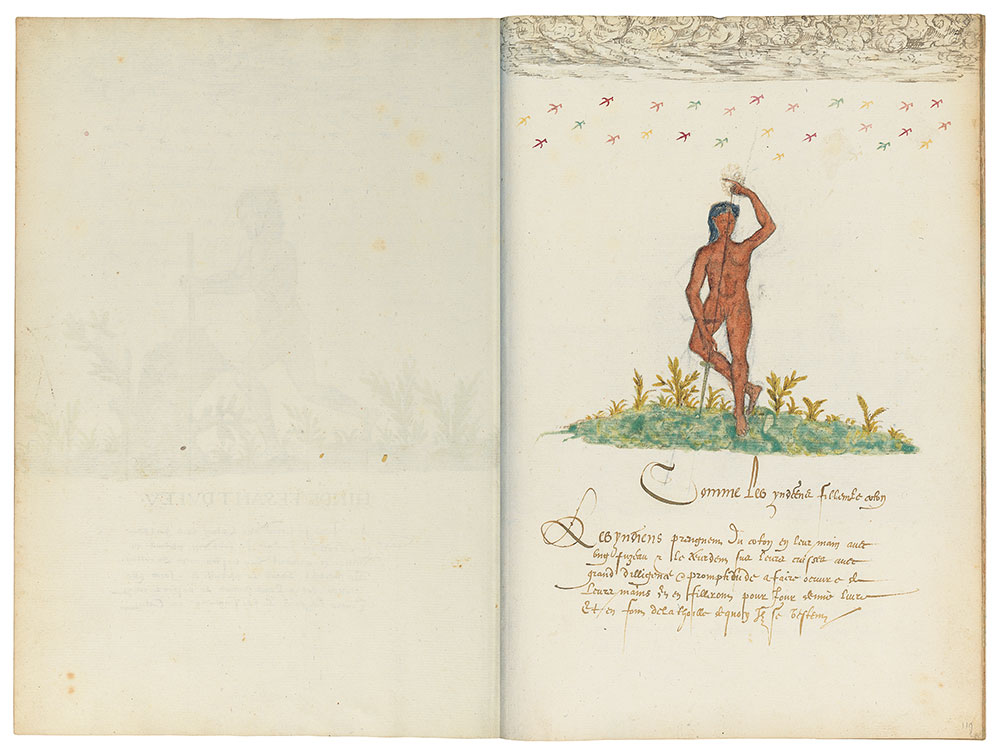 Comme les yndiens fillent le coton
Les yndiens prengnent du coton en leur main avec
ung fuzeau & le tordent sur leurs cuisses avec
grand dilligence & promptitude a faire oeuvre de
leurs mains en fillront pour jour demie livre
Et en font de la thoille de quoy Ilz se vestent